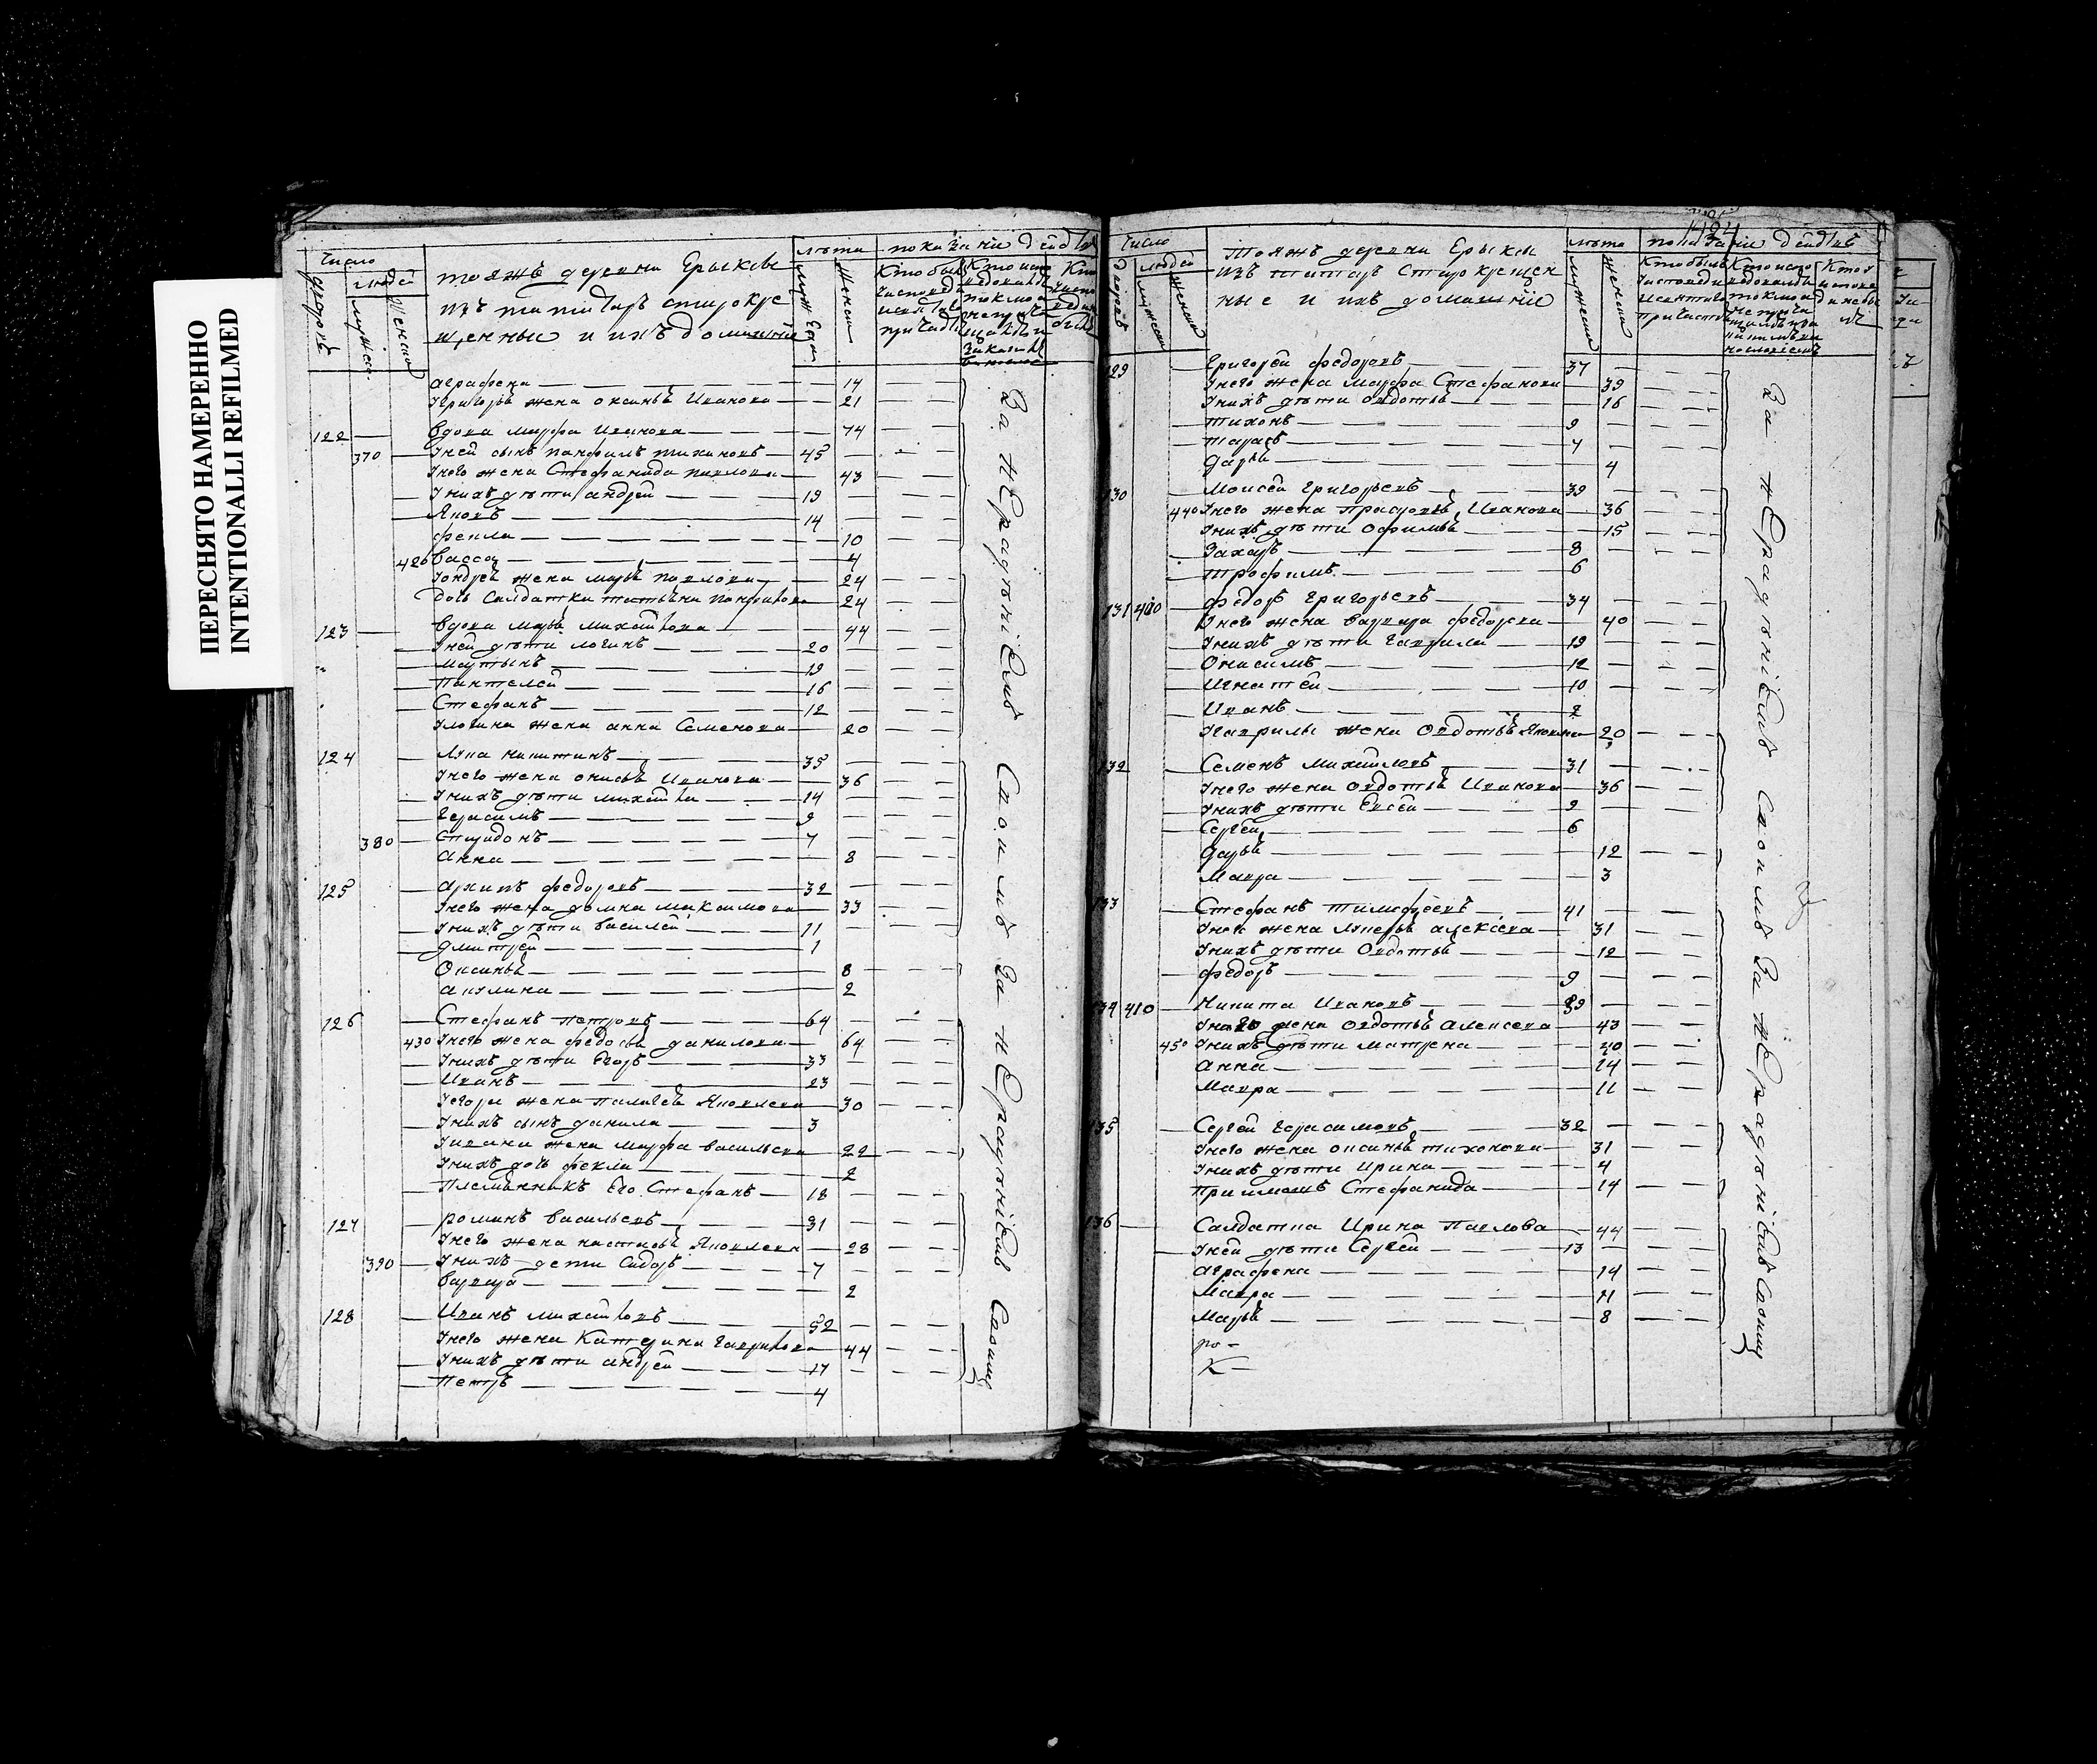 ПЕРЕСНЯТО НАМЕРЕННО
INTENTIONALLI REFILMED
Число
людей
лѣта
показаніе дѣйств
тояжъ деревни Ерыкле
изъ тататаръ старокре
щенные и ихъ домашніе
аграфена 14
Григорья жена оксинья Иванова 21
122 вдова марфа Иванова 74
370 Унеи сынъ панфилъ тихановъ 45
Унего жена Стефанида павлова 43
Унихъ дѣти андреи 19
Яковъ 14
фекла 10
420 васса 4
Уондрея жена марья павлова 24
дочь Салдатка татьяна панфилова 24
123 вдова марья михаилова 44
Унеи дѣти логинъ 20
мартынъ 19
Пантелеи 16
Стефанъ 12
Улогина жена анна Семенова 20
124 Лука никитинъ 35
Унего жена онисья Иванова 36
Унихъ дѣти михаила 14
Герасимъ 9
380 Спиридонъ 7
Анна 8
125 архипъ федоровъ 32
Унего жена домна максимова 33
Унихъ дѣти василеи 11
дмитреи 1
Оксинья 8
акулина 2
126 Стефанъ петровъ 64
430 Унего жена федосья данилова 64
Унихъ дѣти Егоръ 33
Иванъ 23
Уегора жена палагея Яковлева 30
Унихъ сынъ данила 3
Уивана жена марфа васильева 22
Унихъ дочь фекла 2
Племянникъ Его Стефанъ 18
127 романъ васильевъ 31
Унего жена настасья Яковлева 28
390 Унихъ дети Сидоръ 7
варвара 2
128 Иванъ михаиловъ 52
Унего жена Катерина гаврилова 44
Унихъ дѣти андреи 17
Петръ 4
За нерадѣніемъ Своимъ За нерадѣніемъ Своимъ
424
Число
людей
лѣта
показаніе дѣйствъ
Тояжъ деревни Ерыклы
изъ татаръ Старокрещен
ные и ихъ домашніе
129 Григореи федоровъ 37
Унего жена марфа Стефанова 39
Унихъ дѣти овдотья 16
тихонъ 9
тарасъ 7
дарья 4
130 Моисеи Григорьевъ 39
440 Унего жена прасковья Иванова 36
Унихъ дѣти Офимья 15
Захаръ 8
трофимъ 6
131 400 федоръ Григорьевъ 34
Унего жена варвара федорова 40
Унихъ дѣти гаврила 19
Онисимъ 12
Игнатеи 10
Иванъ 2
Угаврилы жена Овдотья Яковлева 20
132 Семенъ михаиловъ 31
Унего жена Овдотья Иванова 36
Унихъ дѣти Евсеи 9
Сергеи 6
дарья 12
Мавра 3
133 Стефанъ тимофеевъ 41
Унего жена лукерья алексіева 31
Унихъ дѣти Овдотья 12
федоръ 9
134 410 Никита Ивановъ 39
Унего жена Овдотья Алексеева 43
450 Унихъ дѣти матрена 20
Анна 14
Мавра 11
135 Сергеи Герасимовъ 32
Унего жена оксинья тиханова 31
Унихъ дѣти Ирина 4
Приимышъ Стефанида 14
136 Салдатка Ирина павлова 44
Унеи дѣти Сергеи 13
аграфена 14
Мавра 11
Марья 8
ро -
К -
За нерадѣніемъ Своимъ За нерадѣніемъ Своимъ